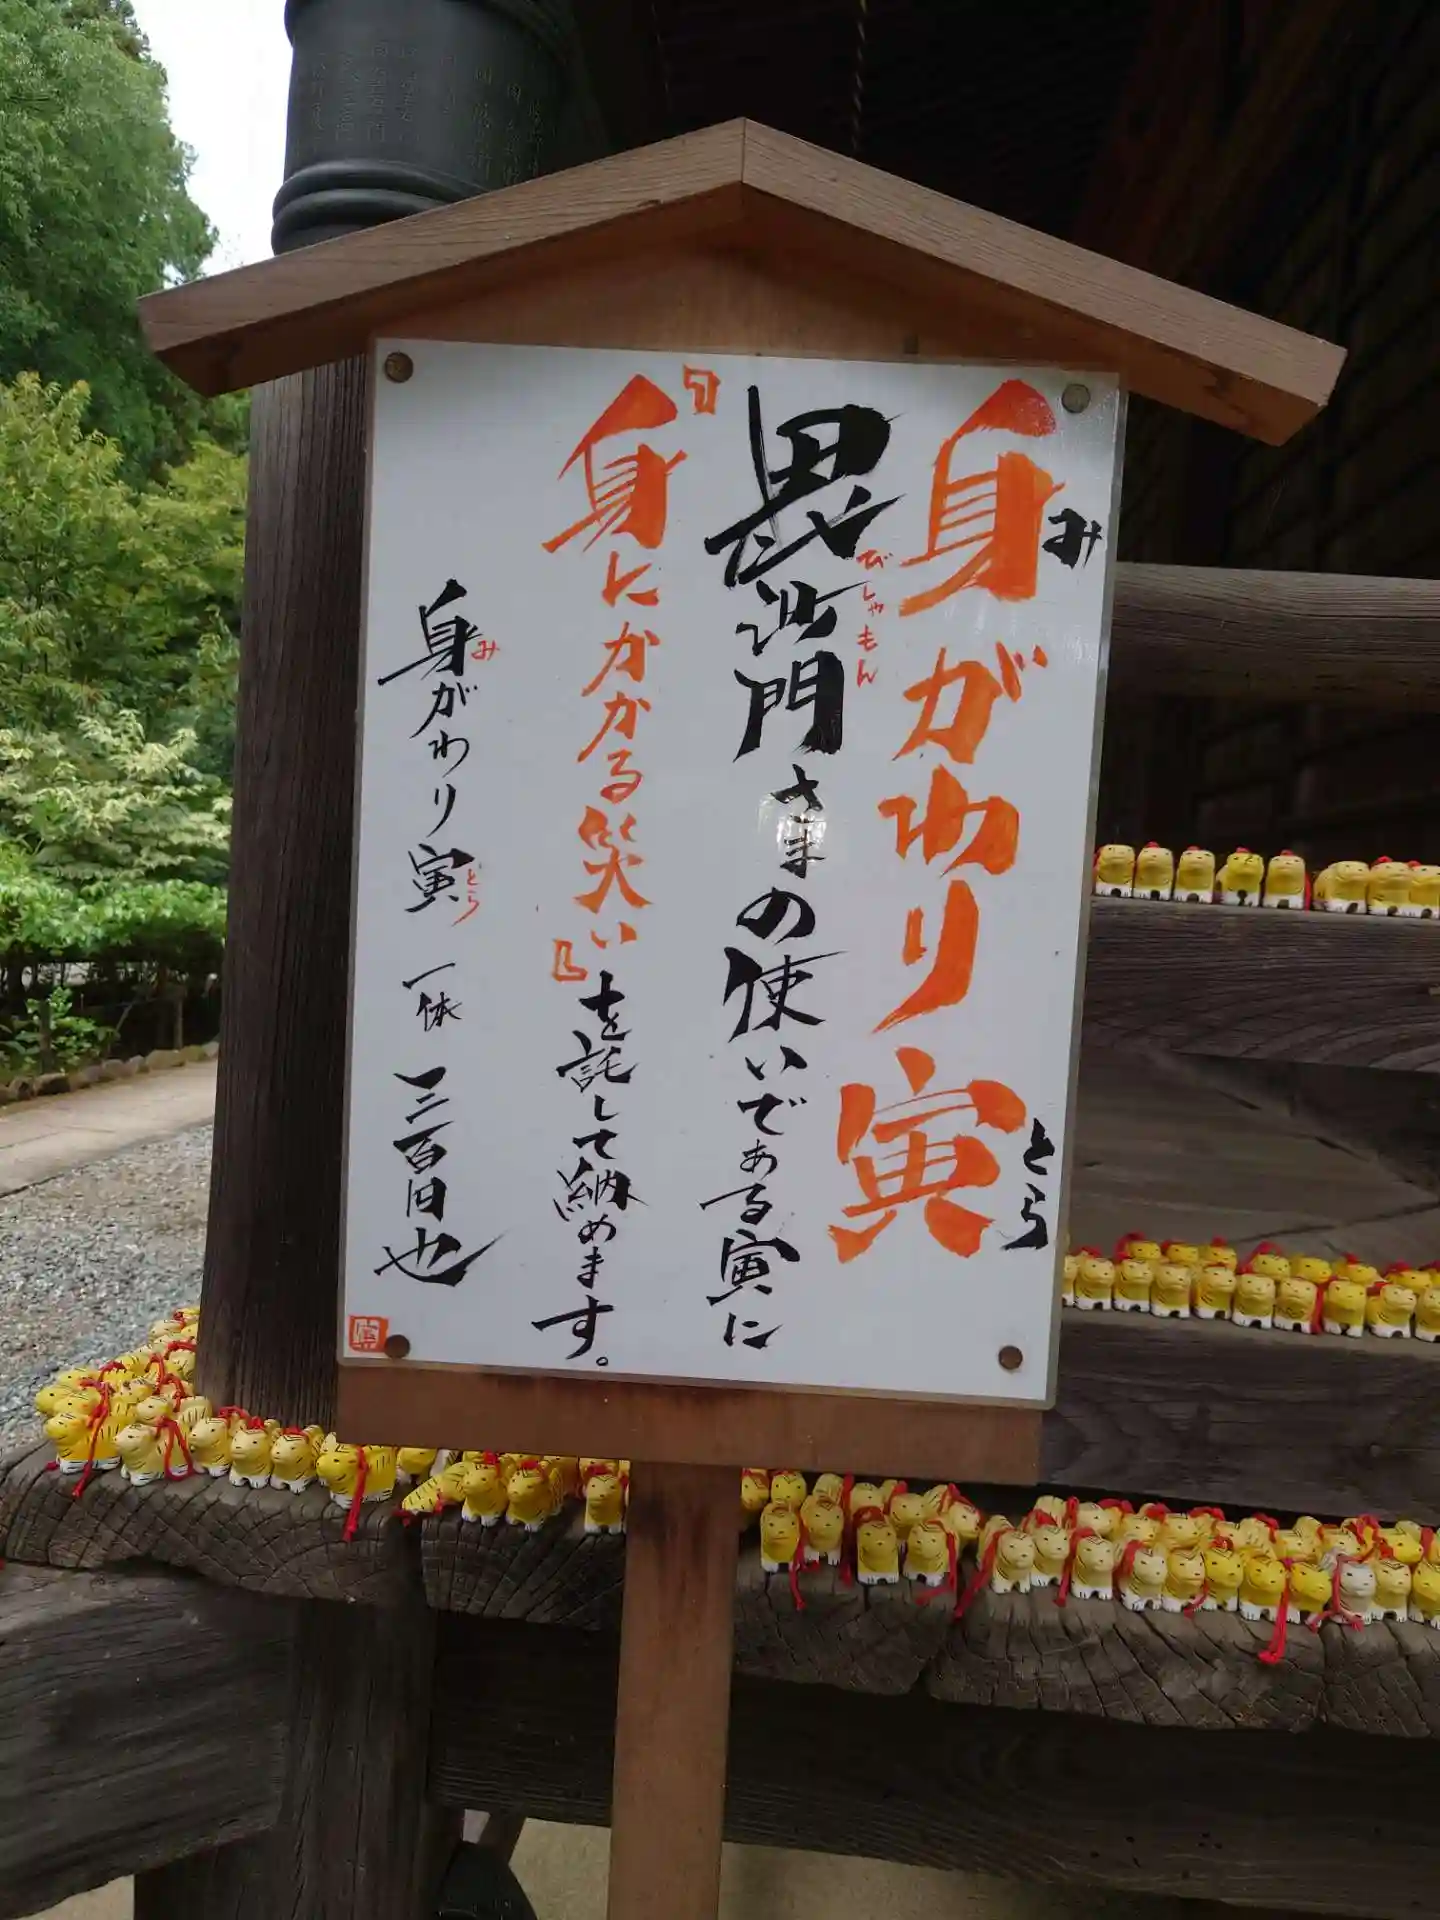 身がわり寅
み
とら
毘沙門さまの使いである寅に
びしゃもん
『身にかかる災い』を託して納めます。
身がわり寅 一体 三百円也
み
とら
寅